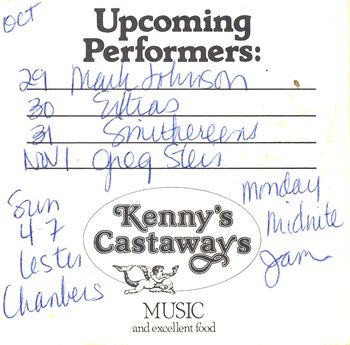 Upcoming
Performers:
Oct
29 Mark Johnson
30 Extras
31 Smithereens
Nov 1 Greg Stein
Sun
4-7
Lester
Chambers
Monday
Midnite
Jam
Kenny's
Castaways
MUSIC
and excellent food